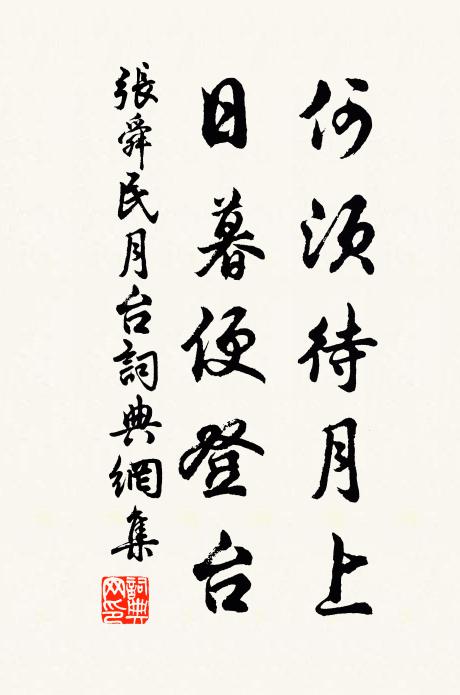 何須待月上
日暮便登台
張舜民月台詞典網集
詞典网印